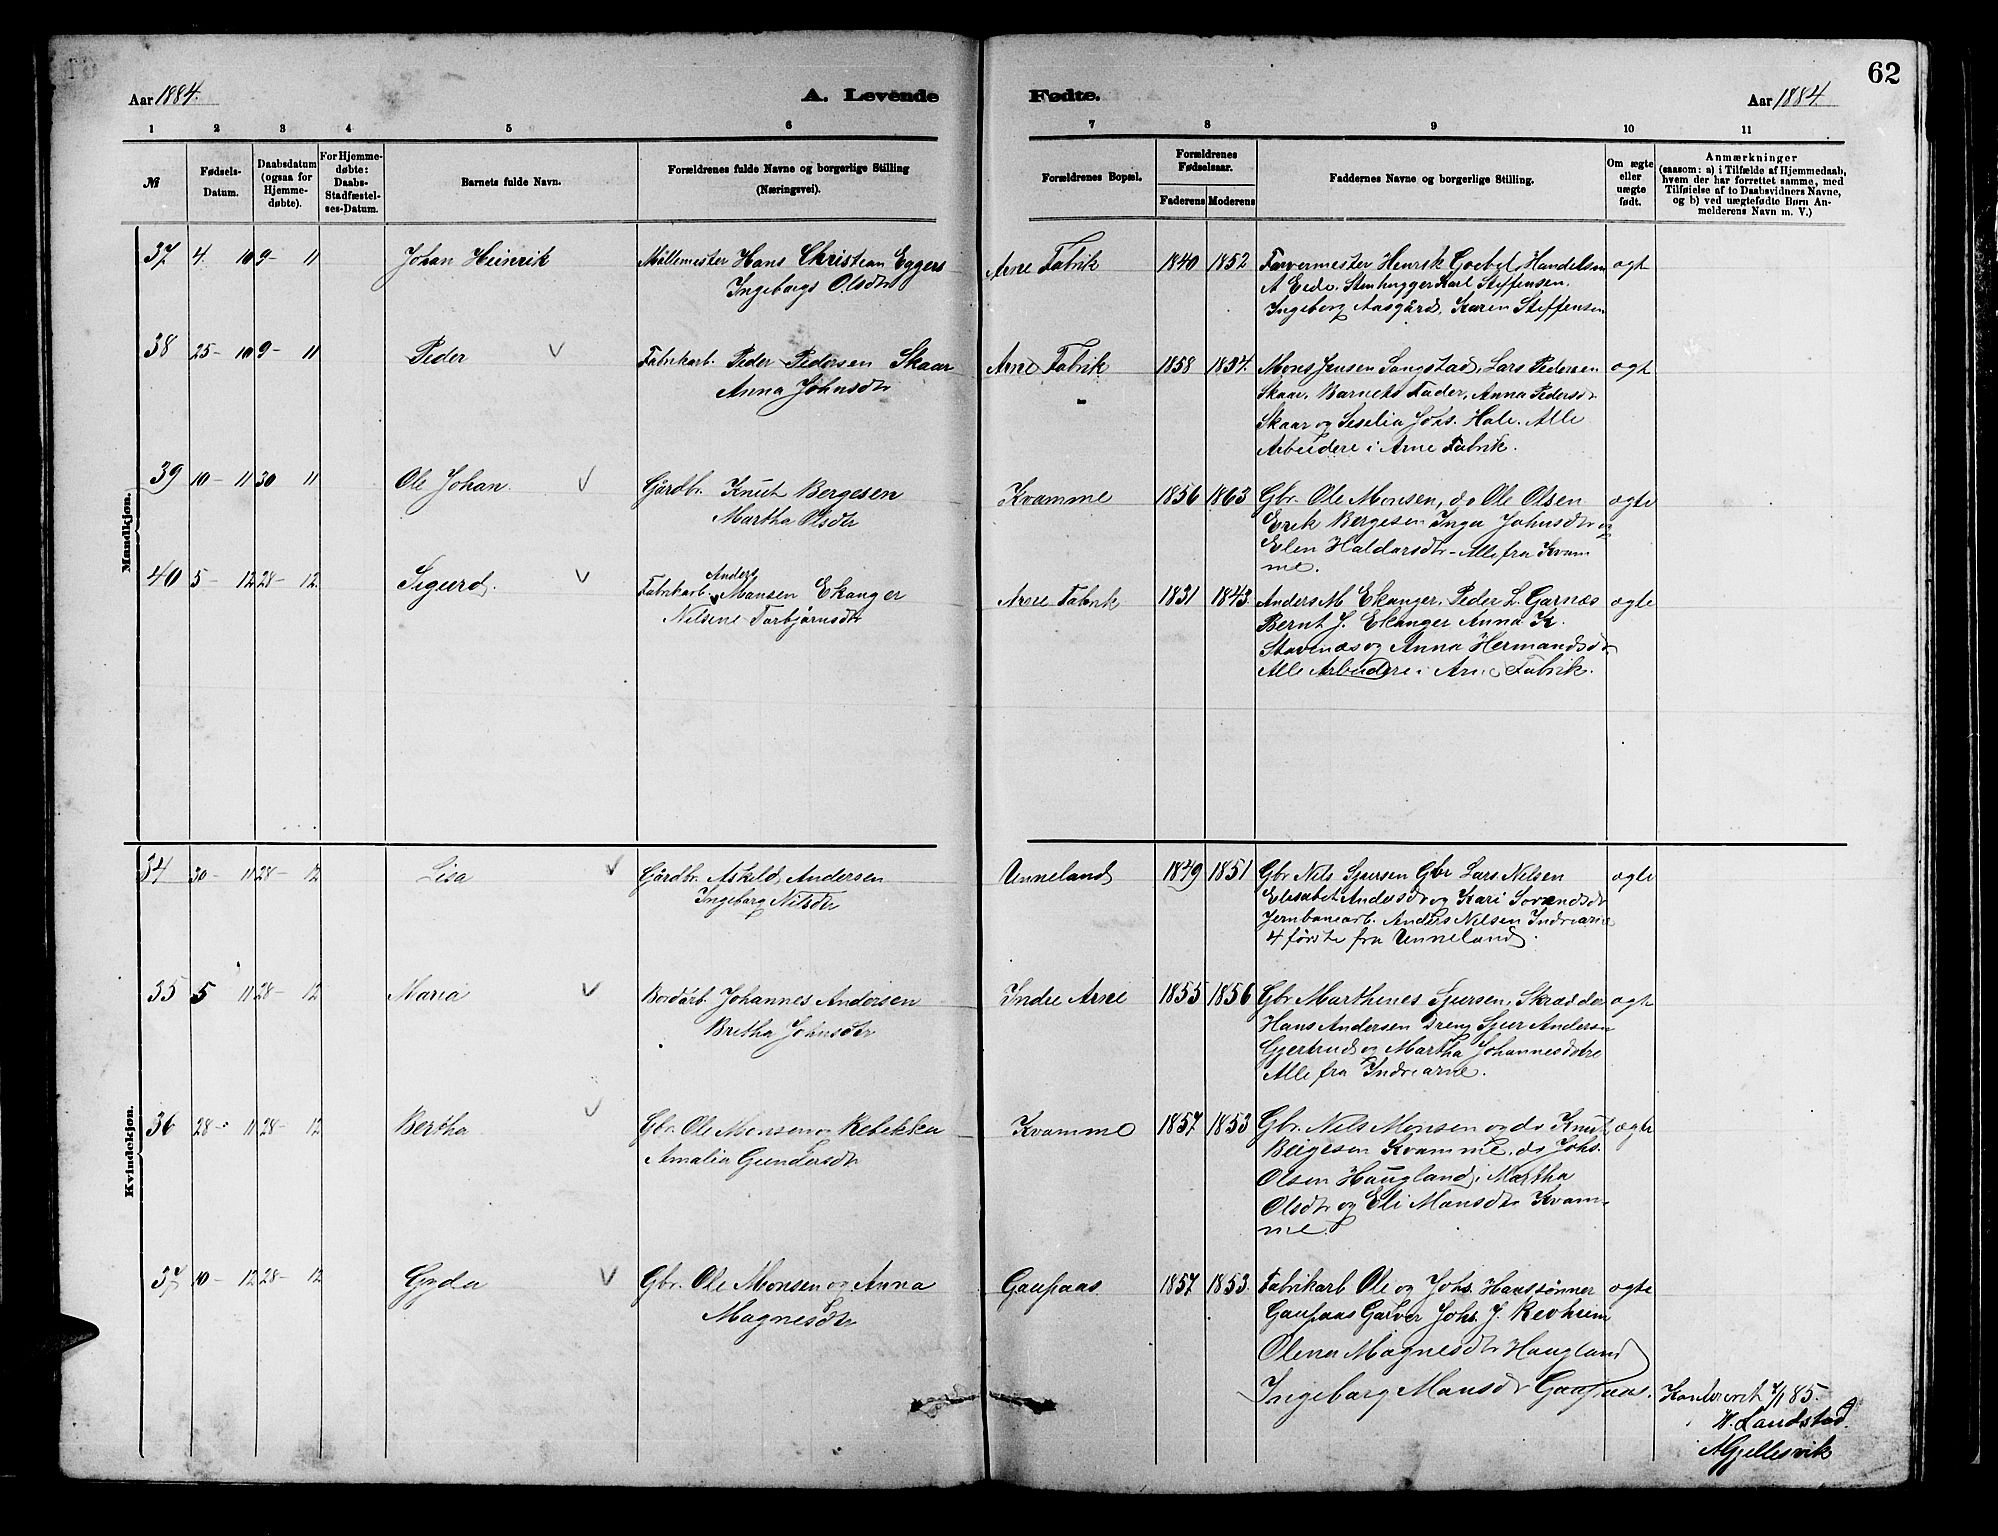 62
Aar 1884.
A. Levende Fødte.
Aar 1884
1 2 3 4 5 6 7 8 9 10 11
№
Fødsels-Datum.
Daabsdatum (ogsaa for Hjemmedøbte).
For Hjemmedøbte: Daabs-Stadfæstelses-Datum.
Barnets fulde Navn.
Forældrenes fulde Navne og borgerlige Stilling (Næringsvei).
Forældrenes Bopæl.
Forældrenes Fødselsaar.
Faderens Moderens
Faddernes Navne og borgerlige Stilling.
Om ægte eller uægte født.
Anmærkninger
(saasom: a) i Tilfælde af Hjemmedaab,
hvem der har forrettet samme, med
Tilføielse af to Daabsvidners Navne,
og b) ved uægtefødte Børn Anmelderens Navn m. V.)
Mandkjøn.
37 4 10 9- 11 Johan Heinrik Møllemester Hans Christian Eggers Arne Fabrik 1840 1852 Farvermester Henrik Goebel, Handelsm ægte
Ingeborg Olsdtr A Eide, Stenhugger Karl Steffensen.
Ingeborg Aasgård, Karen Steffensen
38 25- 10 9- 11 Peder V Fabrikarb. Peder Pedersen Skaar Arne Fabrik 1858 1854. Mons Jensen Langstad, Lars Pedersen ægte
Anna Johnsdtr - Skaar, Barnets Fader, Anna Pedersdtr
Skaar og Seselia Johs. Hale. Alle
Arbeidere i Arne Fabrik.
39 10- 11 30 11 Ole Johan. V Gårdbr. Knut Bergesen Kvamme 1856 1863 Gbr. Ole Monsen, do Ole Olsen ægte
Martha Olsdtr Erik Bergesen Inga Johnsdtr og
Elen Haldorsdtr - Alle fra Kvam
me.
40 5- 12 28- 12. Sigurd. V Fabrikarb. Anders Mansen Ekanger Arne Fabrik 1831 1843. Anders M Ekanger, Peder L. Garnæs ægte
Nilsine Torbjørnsdtr Bernt J. Ekanger Anna K.
Stavenæs og Anna Hermandsdtr
Alle Arbeidere i Arne Fabrik.
Kvindekjøn.
34 30- 11 28- 12 Lisa V Gårdbr. Askild Andersen Unneland 1849 1851 Gbr Nils Sjursen Gbr Lars Nilsen ægte
Ingeborg Nilsdtr Elisabet Andersdtr og Kari Sørensdtr
Jernbanearb. Anders Nilsen Indrearne
4 første fra Unneland.
35 5 11 28- 12 Maria V Bordarb. Johannes Andersen Indre Arne 1855 1856 Gbr Marthines Sjursen, Skrædder ægte
Bretha Johnsdtr Hans Andersen Dreng Sjur Andersen
Gjertrud og Martha Johannesdøtre
Alle fra Indrearne.
36 28- 11 28- 12 Bertha V Gbr. Ole Monsen og Rebekka Kvamme 1857 1853 Gbr. Nils Monsen og do Knut ægte
Amalia Gundersdtr Beigesen Kvamme, do Johs.
Olsen Haugland, Martha
Olsdtr og Eli Mansdtr Kvam-
me.
37 10- 12 28- 12 Gyda V Gbr. Ole Monsen og Anna Gaupaas 1857 1853. Fabrikarb Ole og Johs. Hanssønner ægte
Magnesdtr Gaupaas Garver Johs. J. Revheim
Olena Magnesdtr Haugland
Ingeborg Mansdtr Gaupaas.
Konfereret 4/1 85.
W. Landstad.
A Gjellesvik